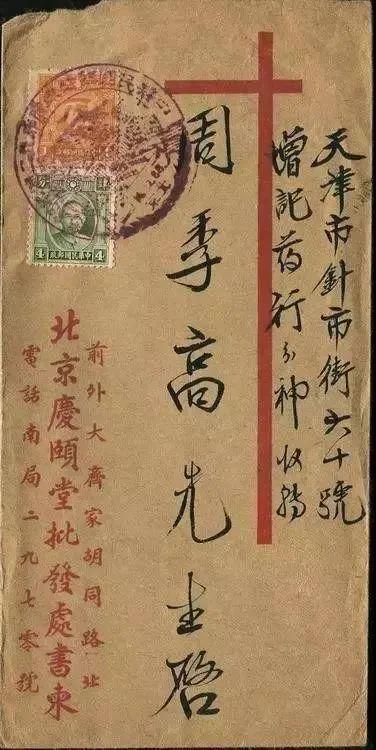 天津市針市街六十號
增記药行分神收轉
周季高先生啓
前外大齊家胡同路北
北京慶頤堂批發處書柬
電話南局二九七零號
4
分
中華民國郵政
4